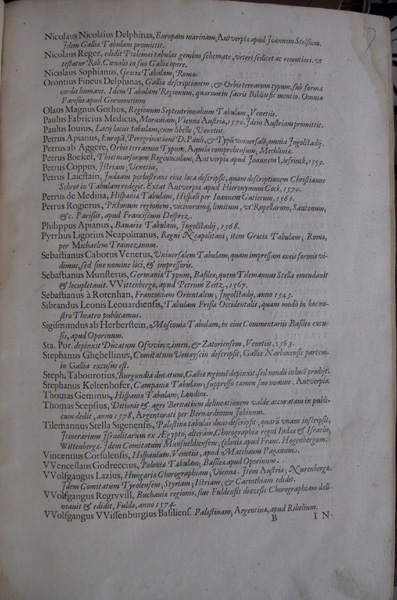 Nicolaus Nicolaius Delphinas, Europam marinam, Antverpiæ apud Joannem Stelsium.
Idem Galliæ Tabulam promittit.
Nicolaus Reger, edidit Ptolemæi tabulas
testatur Rob. Cænalis in suo Galliæ opere.
Nicolaus Sophianus, Græciæ Tabulam, Romæ.
Orontius Fineus Delphinas, Galliæ descriptionem, & Orbis terrarum typum, sub forma
cordis humani. Idem Tabulam Regionum, quarum in sacris Bibliis fit mentio. Omnia
Parisiis apud Gormontium.
Olaus Magnus Gothus, Regionum Septentrionalium Tabulam, Venetiis.
Paulus Fabricius Medicus, Moraviam, Viennæ Austriæ, 1570. Idem Austriam promittit.
Paulus Iouius, Larij lacus tabulam, cum libello, Venetiis.
Petrus Apianus, Europæ, Peregrinationis D. Pauli, & Typi vniversalis, omnia Ingolstadij.
Petrus ab Aggere, Orbis terrarum Typum, Aquila comprehensum, Mechliniæ.
Petrus Boekel, Thietmarsorum Regiunculam, Antverpiæ apud Joannem Liefrinck, 1559.
Petrus Coppus, Istriam, Venetiis.
Petrus Laicstain, Judæam perlustrans eius loca descripsit, quam descriptionem Christianus
Schrot in Tabulam redegit. Extat Antverpiæ apud Hieronymum Cock, 1570.
Petrus de Medina, Hispaniæ Tabulam, Hispali per Joannem Gutierum, 1560.
Petrus Rogierus, Pictonum regionem, vicinorumque limitum, vt Rupellarum, Santonum,
&c. Parisiis, apud Franciscum Desprez.
Philippus Apianus, Bavariæ Tabulam, Ingolstadij, 1568.
Pyrrhus Ligorius Neapolitanus, Regni Neapolitani, item Græciæ Tabulam, Romæ,
per Michaelem Tramezinum.
Sebastianus Cabotus Venetus, Vniversalem Tabulam, quam impressam æneis formis vi-
dimus, sed sine nomine loci, & impressoris.
Sebastianus Munsterus, Germaniæ Typum, Basileæ, quem Tilemannus Stella emendavit
& locupletavit. VVittenbergæ, apud Petrum Zeitz, 1567.
Sebastianus à Rotenhan, Franconiam Orientalem, Ingolstadij, anno
Sibrandus Leonis Leouardiensis, Tabulam Frisiæ Occidentalis, quam modò in no-
stro Theatro publicamus.
Sigismundus ab Herberstein, Moscoviæ Tabulam, in eius Commentariis Basileæ excu-
sis, apud Oporinum.
Sta. Por. depinxit Ducatum Osvviecimen. & Zatoriensem, Venetiis, 1563.
Stephanus Ghebellinus, Comitatum Venayscin descripsit, Galliæ Narbonensis partem
in Gallia excusum est.
Steph. Tabourotius, Burgundiæ ducatum, Galliæ regionem depinxit, sed nondum in lucem prodijt.
Stephanus Keltenhofer, Campaniæ Tabulam, suppresso tamen suo nomine, Antverpiæ.
Thomas Geminus, Hispaniæ Tabulam, Londini.
Thomas Scepsius, Ditionis & agri Bernatium delineationem valde accuratam in publi-
cum edidit, anno 1578, Argentorati per Bernardinum Jobinum.
Tilemannus Stella Sigenensis, Palæstinæ tabulas duas descripsit, quarum vnam inscripsit,
Itinerarium Israelitarum ex Ægypto; alteram, Chorographia regni Iudæ & Israëlis,
Wittenbergæ. Idem Comitatum Mansueldensem; Coloniæ apud Franc. Hogenbergum.
Vincentius Corsulensis, Hispaniam, Venetiis, apud Matthæum Paganum.
VVenceslaus Godreccius, Poloniæ Tabulam; Basileæ apud Oporinum.
VVolfgangus Lazius, Hungariæ Chorographiam, Viennæ. Item Austriæ, Nurenbergæ.
Idem Comitatum Tyrolensem, Styriam, Istriam, & Carinthiam edidit.
VVolfgangus Regrvvill, Buchoniæ regionis, sive Fuldensis diœcesis Chorographiam deli-
neavit & edidit, Fuldæ, anno 1574.
VVolfgangus VVissenburgius Basiliens. Palæstinam, Argentinæ, apud Rihelium.
B IN-